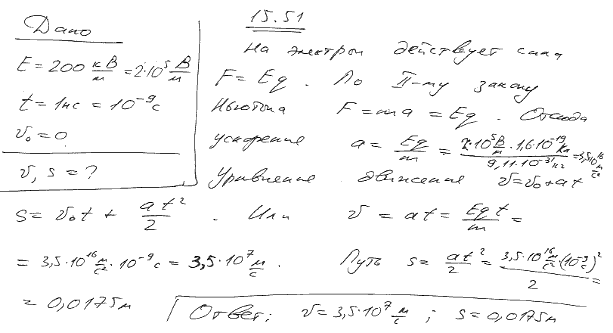 15.51
Дано
E = 200 кВ/м = 2·10⁵ В/м
t = 1нс = 10⁻⁹ с
v₀ = 0
v, s = ?
На электрон действует сила
F = Eq. По II-му закону
Ньютона F = ma = Eq. Отсюда
ускорение a = Eq/m = (2·10⁵ В/м · 1,6·10⁻¹⁹ Кл)/(9,11·10⁻³¹ кг) = 3,5·10¹⁶ м/с²
Уравнение движения v = v₀ + at
s = v₀t + at²/2. Или v = at = Eqt/m =
= 3,5·10¹⁶ м/с² · 10⁻⁹ с = 3,5·10⁷ м/с. Путь s = at²/2 = (3,5·10¹⁶ м/с² (10⁻⁹ с)²)/2 =
= 0,0175м Ответ: v = 3,5·10⁷ м/с; s = 0,0175м